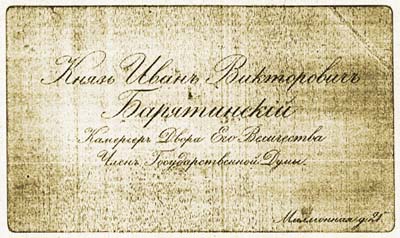 Князь Иванъ Викторовичъ
Барятинскій
Камергеръ Двора Его Величества
Членъ Государственной Думы.
Милліонная д. 21.